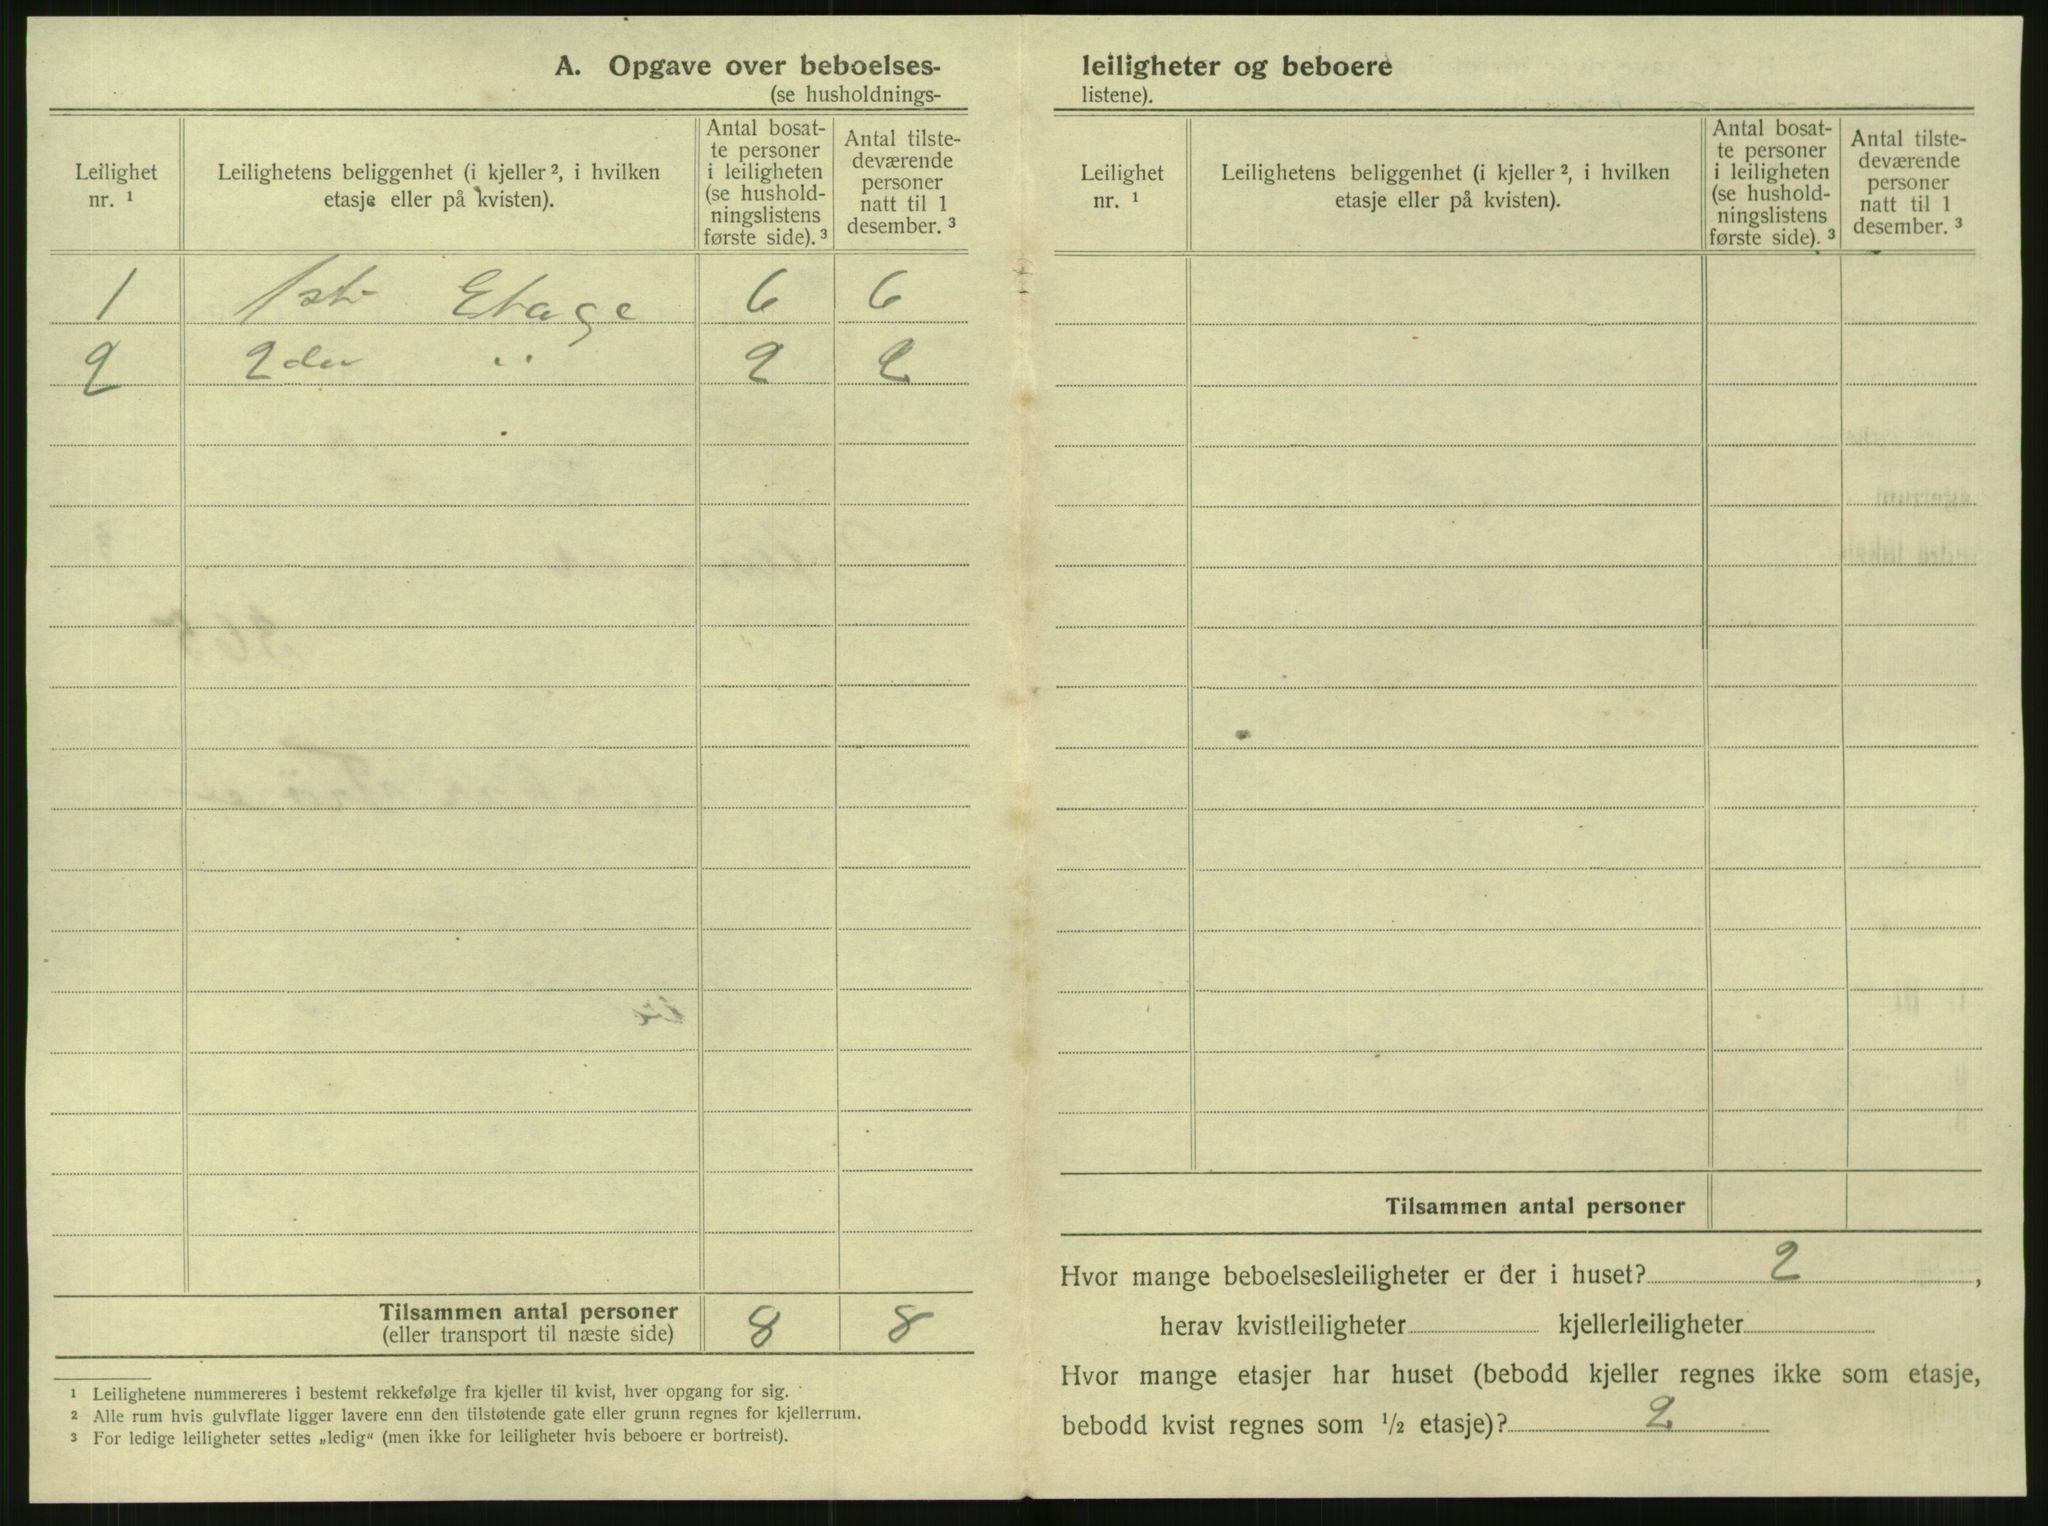 A. Opgave over beboelses-
(se husholdnings-
Leilighet nr. ¹
Leilighetens beliggenhet (i kjeller ², i hvilken etasje eller på kvisten).
Antal bosat-
te personer
i leiligheten
(se hushold-
ningslistens
første side). ³
Antal tilste-
deværende
personer
natt til 1
desember. ³
1 1ste Etage 6 6
2 2den " 2 2
Tilsammen antal personer 8 8
(eller transport til næste side)
¹ Leilighetene nummereres i bestemt rekkefølge fra kjeller til kvist, hver opgang for sig.
² Alle rum hvis gulvflate ligger lavere enn den tilstøtende gate eller grunn regnes for kjellerrum.
³ For ledige leiligheter settes „ledig“ (men ikke for leiligheter hvis beboere er bortreist).
leiligheter og beboere
listene).
Leilighet nr. ¹
Leilighetens beliggenhet (i kjeller ², i hvilken etasje eller på kvisten).
Antal bosat-
te personer
i leiligheten
(se hushold-
ningslistens
første side). ³
Antal tilste-
deværende
personer
natt til 1
desember. ³
Tilsammen antal personer
Hvor mange beboelsesleiligheter er der i huset? 2 ,
herav kvistleiligheter kjellerleiligheter
Hvor mange etasjer har huset (bebodd kjeller regnes ikke som etasje,
bebodd kvist regnes som ½ etasje)? 2